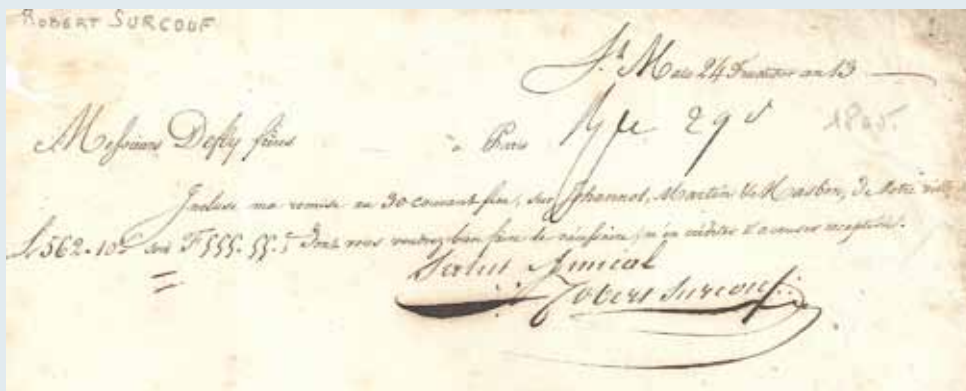 ROBERT SURCOUF
St. Malo 24 fructidor an 13
Messieurs Defly frères à Paris 29
1805.
Incluse ma remise au 30 courant fixe, sur Johannot, Martin & Masbon, de votre ville,
L 562-10 s soit F 555.55 c dont vous voudrez bien faire le nécessaire, m'en créditer & accuser reception.
Salut Amical
Robert Surcouf